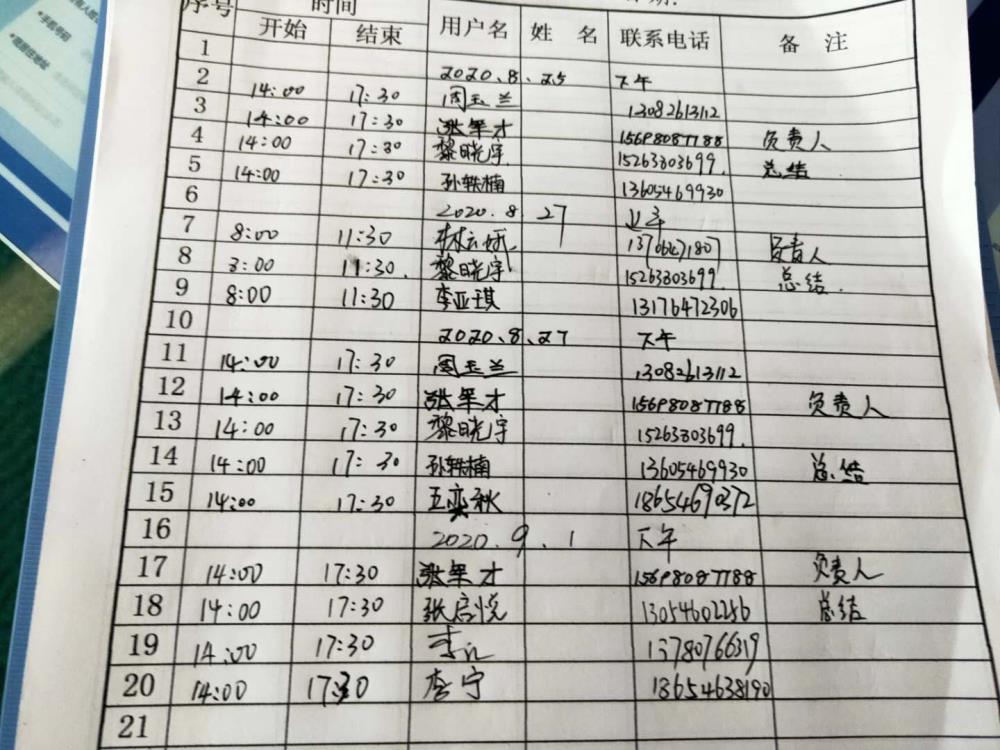 序号 时间 用户名 姓 名 联系电话 备 注
开始 结束
1
2 2020.8.25 下午
3 14:00 17:30 周玉兰 13082613112
4 14:00 17:30 张军才 15698087788 负责人
5 14:00 17:30 黎晓宇 15263803699. 总结
6 14:00 17:30 孙轶楠 13605469930
7 2020.8.27 上午
8 8:00 11:30 1807 负责人
9 8:00 11:30. 黎晓宇 15263803699. 总结.
10 8:00 11:30 李亚琪 13176472306
11 2020.8.27 下午
12 14:00 17:30 周玉兰 13082613112
13 14:00 17:30 张军才 15698087788 负责人
14 14:00 17:30 黎晓宇 15263803699.
15 14:00 17:30 孙轶楠 13605469930 总结
16 14:00 17:30 王奕秋 18654690372
17 2020.9.1 下午
18 14:00 17:30 张军才 15698087788 负责人
19 14:00 17:30 张启悦 13054602256 总结
20 14:00 17:30 13780766319
21 14:00 17:30 李宁 18654638190